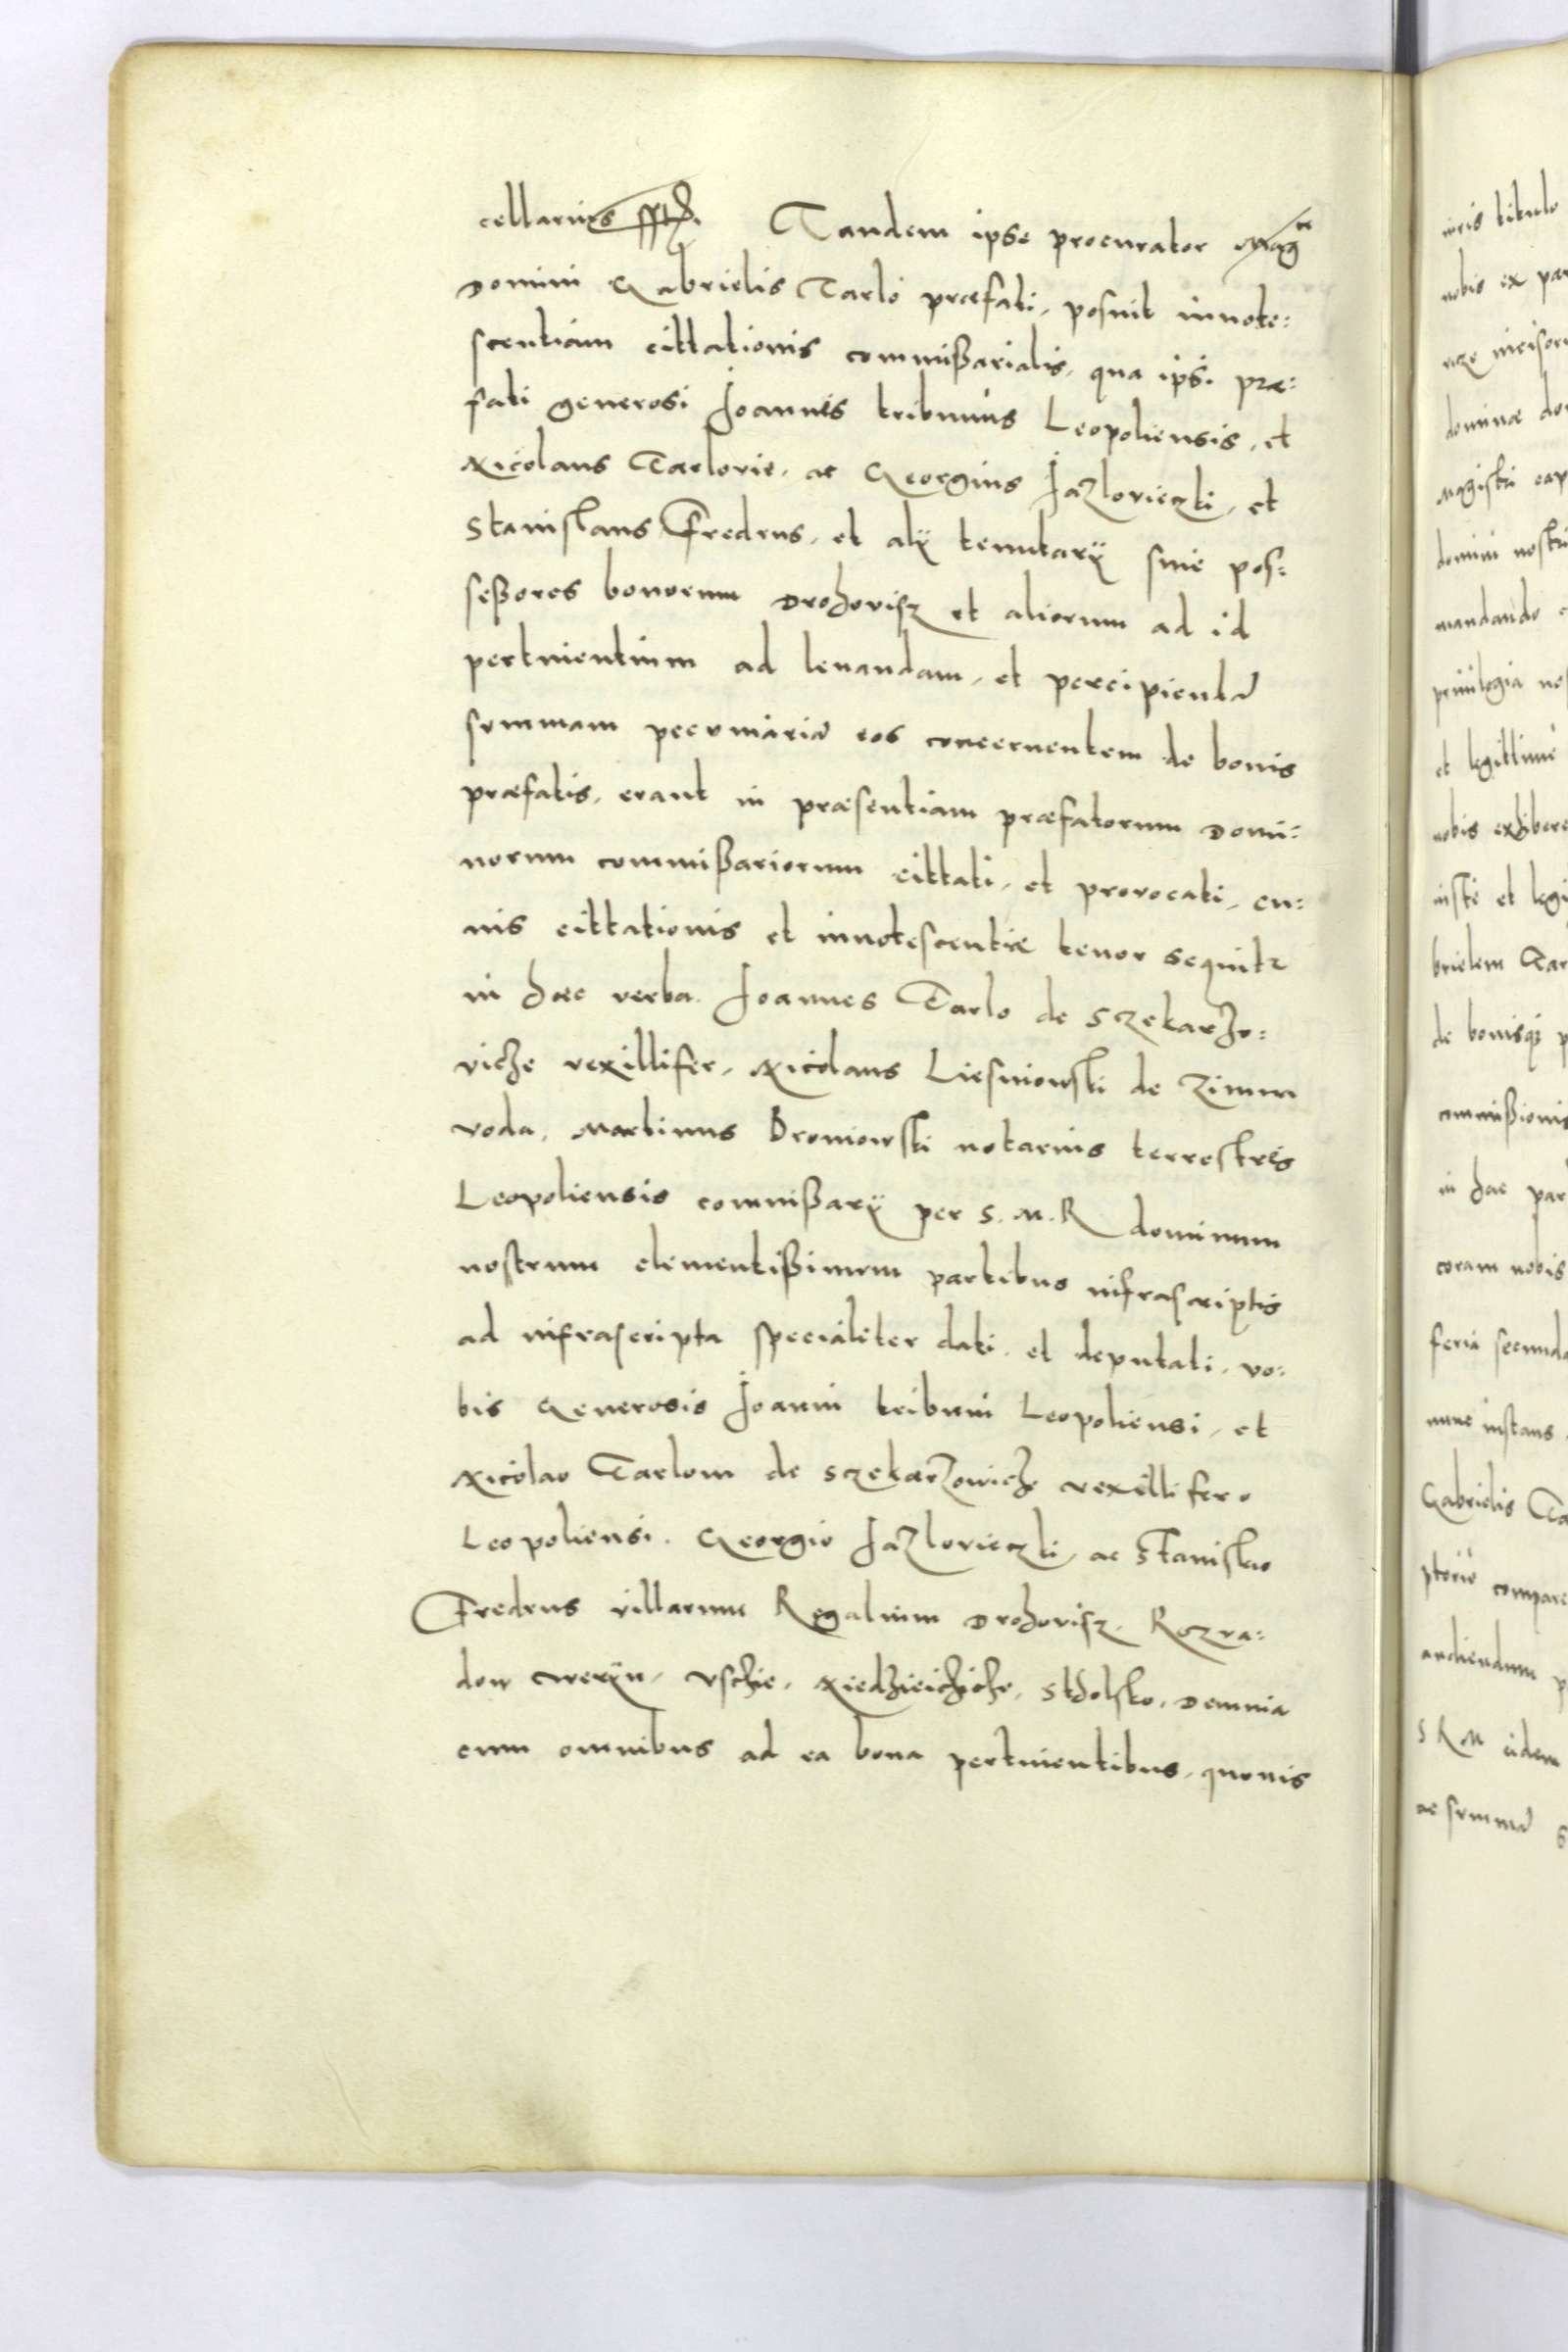 cellarius sstz. Tandem ipse procurator Mag
Domini Gabrielis Tarlo præfati, posuit innote:
scentiam cittationis commißarialis, qua ipsi præ:
fati generosi Joannes tribunus Leopoliensis, et
Nicolaus Tarlovie, ac Georgius Jazlovieczki, et
Stanislaus Fredrus, et alÿ tenutarÿ siue pos:
seßores bonorum Drohovisz et aliorum ad id
pertinentium ad leuandam, et percipienda
summam pecuniaria eos concernentem de bonis
præfatis, erant in præsentiam præfatorum Domi:
norum commißariorum cittati, et provocati, cu:
ius cittationis et innotescentiæ tenor sequitr
in hæc verba. Joannes Tarlo de Szekarzo:
viche vexillifer, Nicolaus Liesniowski de Zimna
voda, Martinus Droniowski notarius terrestres
Leopoliensis commißarÿ per S. M. R dominum
nostrum clementißimum partibus infrascriptis
ad infrascripta specialiter dati, et deputati, vo:
bis Generosis Joanni tribuni Leopoliensi, et
Nicolao Tarloni de Szekarzowich vexillifero
Leopoliensi. Georgio Jazlovieczki, ac Stanislao
Fredrus villarum Regalium Drohovisz, Rozva:
dow Weryn, Uschie, Niedzieichiche, Stholsko, Demnia
cum omnibus ad ea bona pertinentibus, quouis
iuris titulo
nobis ex par
domine do
Magistri cap
domini nostri
mandando
priuilegia no
et legittime
nobis exhibere
iuste et legi
brielem Tar
de bonisq p
commißionis
in hac par
coram nobis
feria secunda
nunc instans
Gabrielis Ta
compare
audiendum p
S R M eidem
ac summa